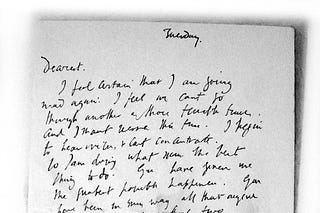 Tuesday.
Dearest,
I feel certain that I am going
mad again: I feel we can't go
through another of those terrible times.
And I shant recover this time. I begin
to hear voices, & cant concentrate.
So I am doing what seems the best
thing to do. You have given me
the greatest possible happiness. You
have been in every way all that anyone
two